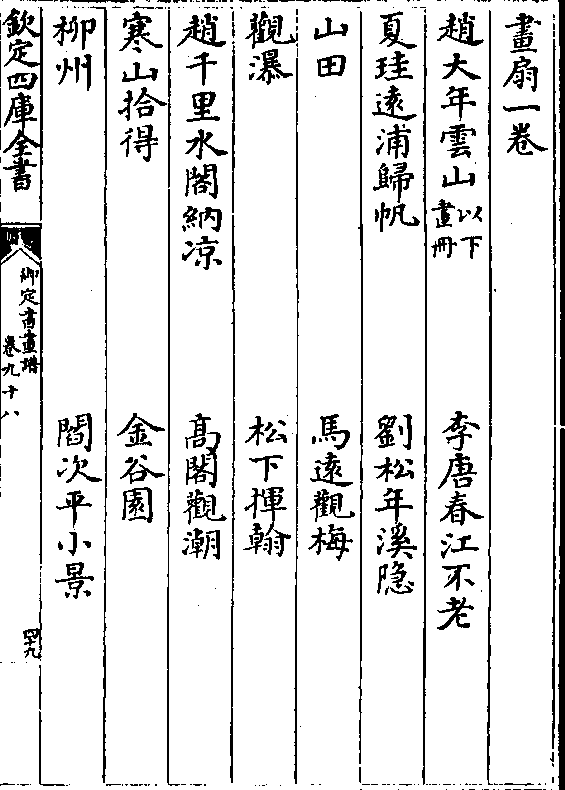 畫扇一卷
趙大年雲山以下畫冊 李唐春江不老
夏珪遠浦歸帆 劉松年溪隐
山田 馬遠觀梅
觀瀑 松下揮翰
趙千里水閣納凉 髙閣觀潮
寒山拾得 金谷園
柳州 閻次平小景
欽定四庫全書 御定書畫譜 卷九十八 四十九